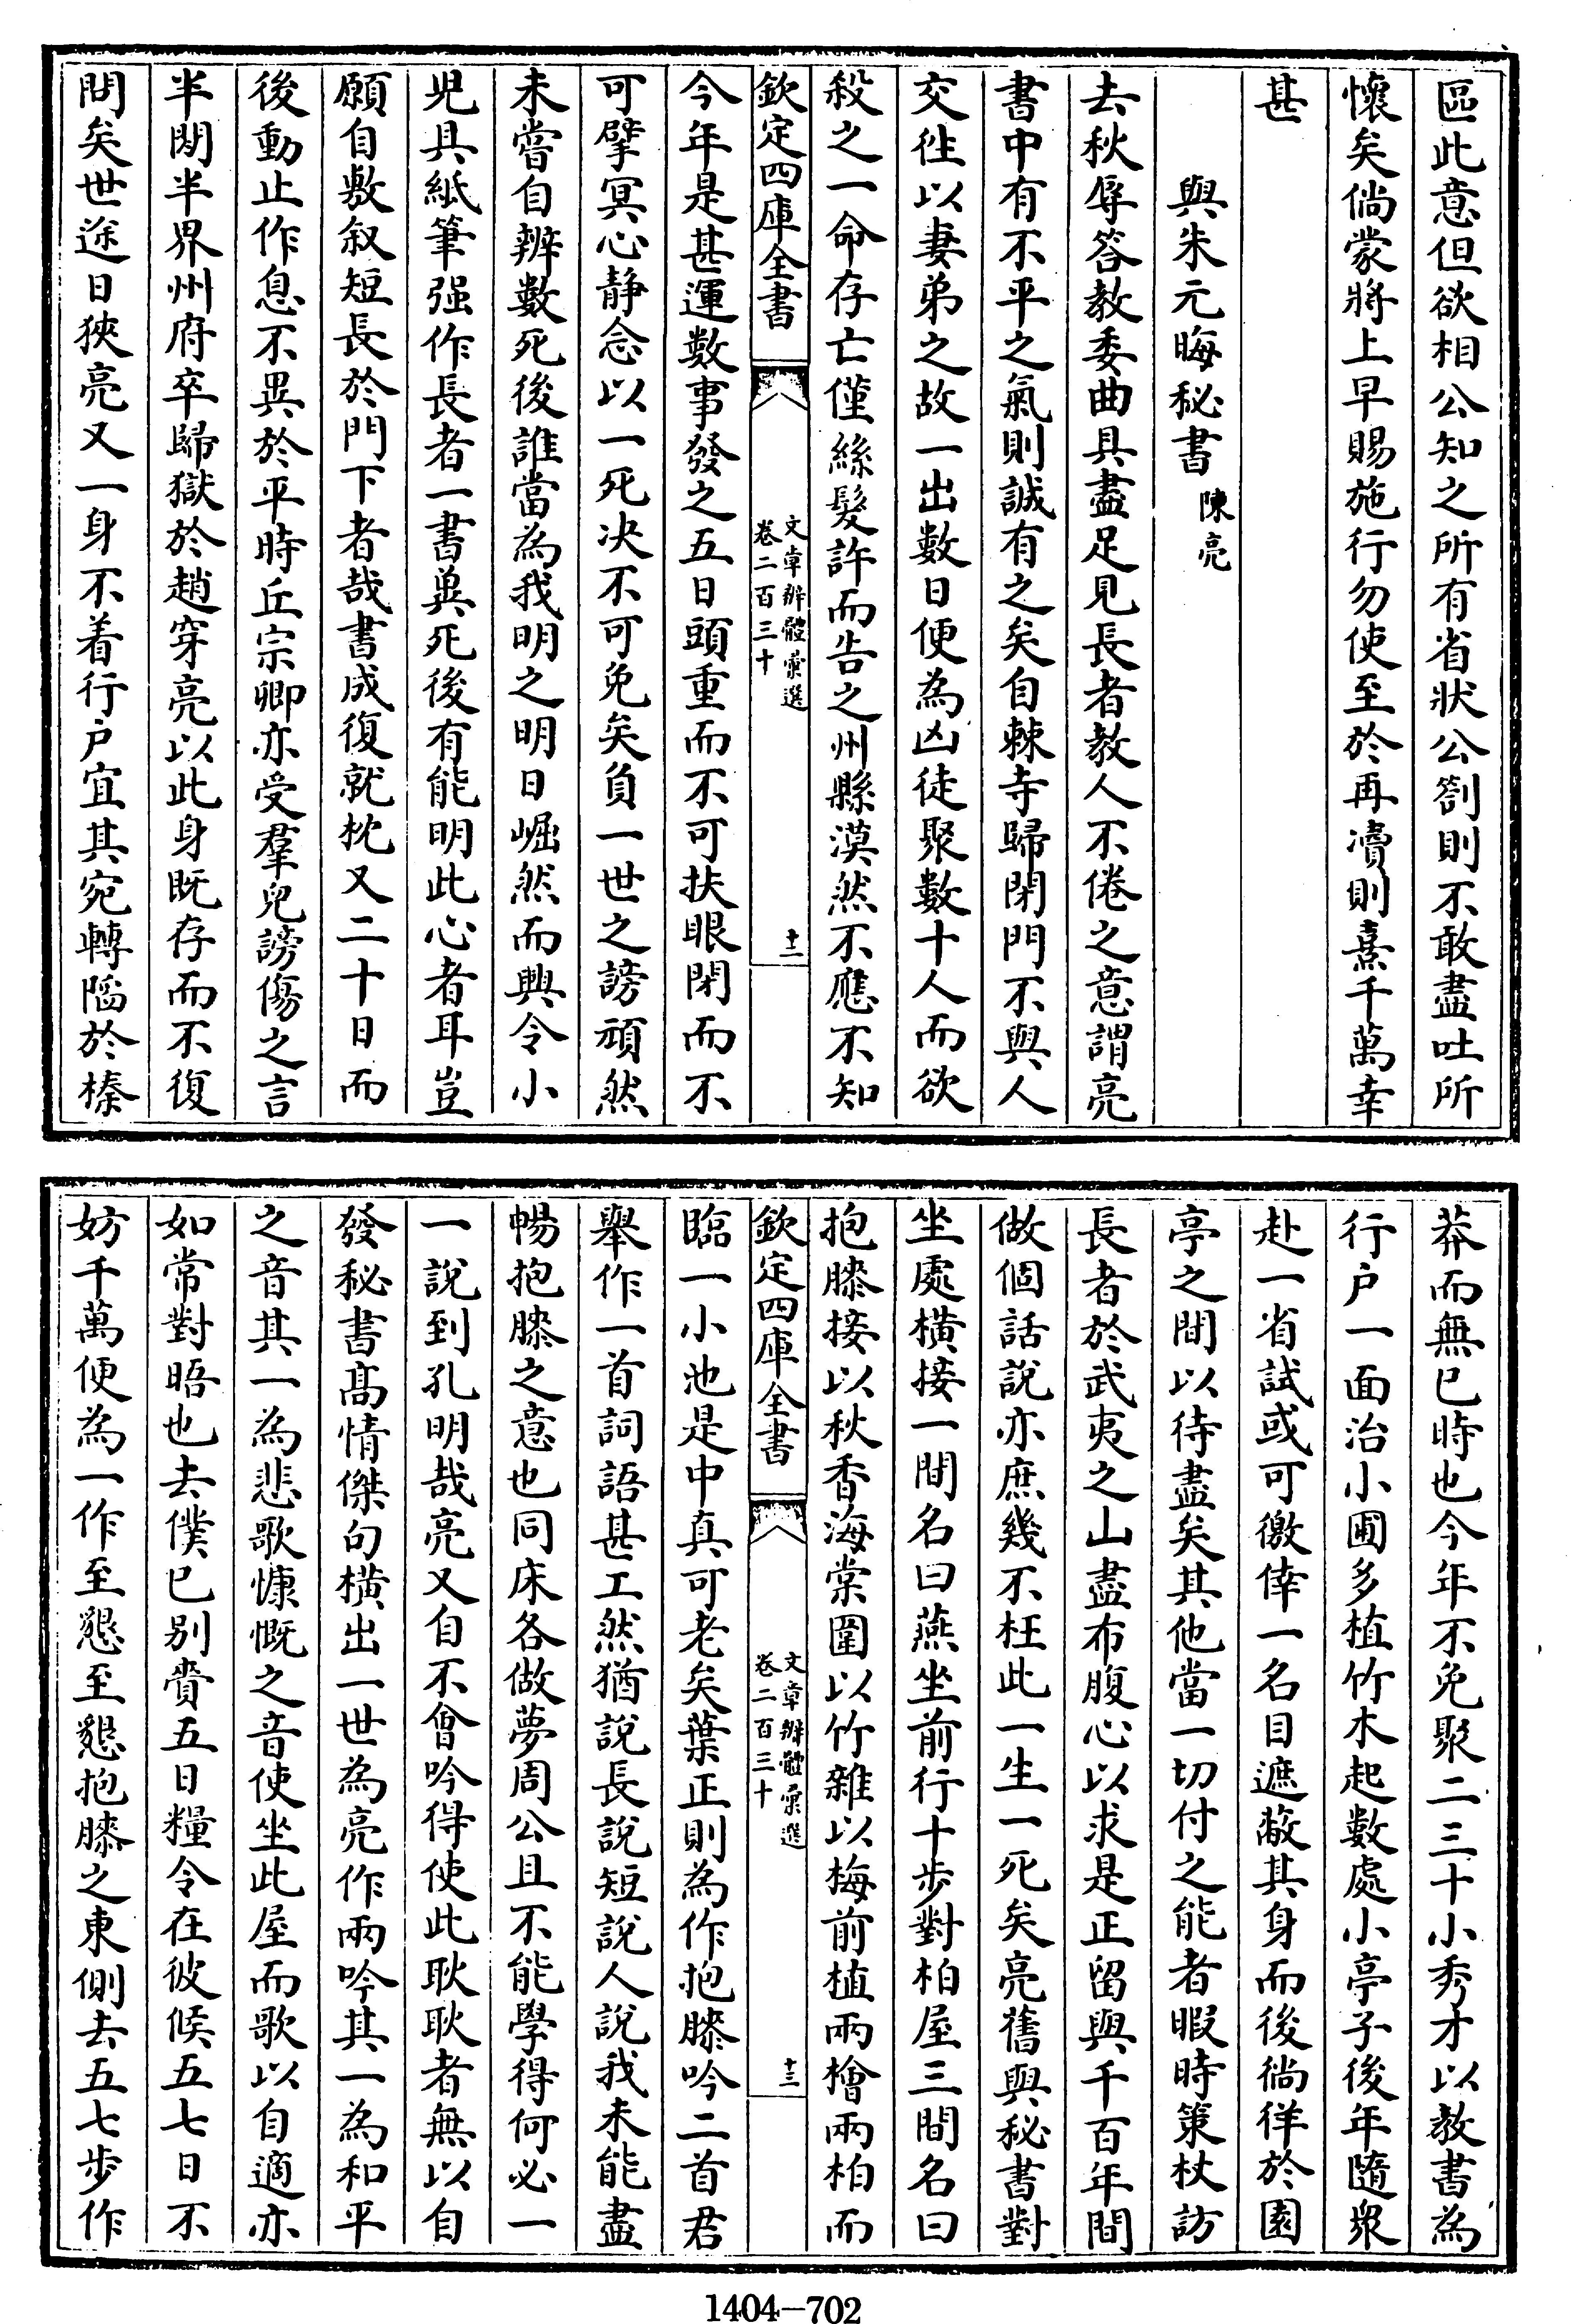 區此意但欲相公知之所有省狀公劄則不敢盡吐所
懷矣倘蒙將上早賜施行勿使至於再瀆則熹千萬幸
甚
與朱元晦秘書 陳亮
去秋辱答教委曲具盡足見長者教人不倦之意謂亮
書中有不平之氣則誠有之矣自棘寺歸閉門不與人
交徃以妻弟之故一出數日便為凶徒聚數十人而欲
殺之一命存亡僅絲髮許而告之州縣漠然不應不知
欽定四庫全書
文章辨體彙選
卷二百三十
十二
今年是甚運數事發之五日頭重而不可扶眼閉而不
可擘冥心靜念以一死决不可免矣負一世之謗頑然
未嘗自辨數死後誰當為我明之明日崛然而興令小
兒具紙筆强作長者一書興死後有能明此心者耳豈
願自敷叙短長於門下者哉書成復就枕又二十日而
後動止作息不異於平時丘宗卿亦受羣兒謗傷之言
半間半界州府卒歸獄於趙穿亮以此身既存而不復
問矣世途日狹亮又一身不着行户宜其宛轉陷於榛
莽而無已時也今年不免聚二三十小秀才以教書為
行户一面治小圃多植竹木起數處小亭子後年隨衆
赴一省試或可徼倖一名目遮蔽其身而後徜徉於園
亭之間以待盡矣其他當一切付之能者暇時策杖訪
長者於武夷之山盡布腹心以求是正留與千百年間
做個話說亦庶幾不枉此一生一死矣亮舊與秘書對
坐處横接一間名曰燕坐前行十步對柏屋三間名曰
抱膝接以秋香海棠圍以竹雜以梅前植兩檜兩柏而
欽定四庫全書
文章辨體彙選
卷二百三十
十三
臨一小池是中真可老矣葉正則為作抱膝吟二首君
舉作一首詞語甚工然猶說長說短說人說我未能盡
暢抱膝之意也同床各做夢周公且不能學得何必一
一說到孔明哉亮又自不會吟得使此耿耿者無以自
發秘書髙情傑句橫出一世為亮作兩吟其一為和平
之音其一為悲歌慷慨之音使坐此屋而歌以自適亦
如常對晤也去僕已别賫五日糧令在彼候五七日不
妨千萬便為一作至懇至懇抱膝之東側去五七步作
1404—702